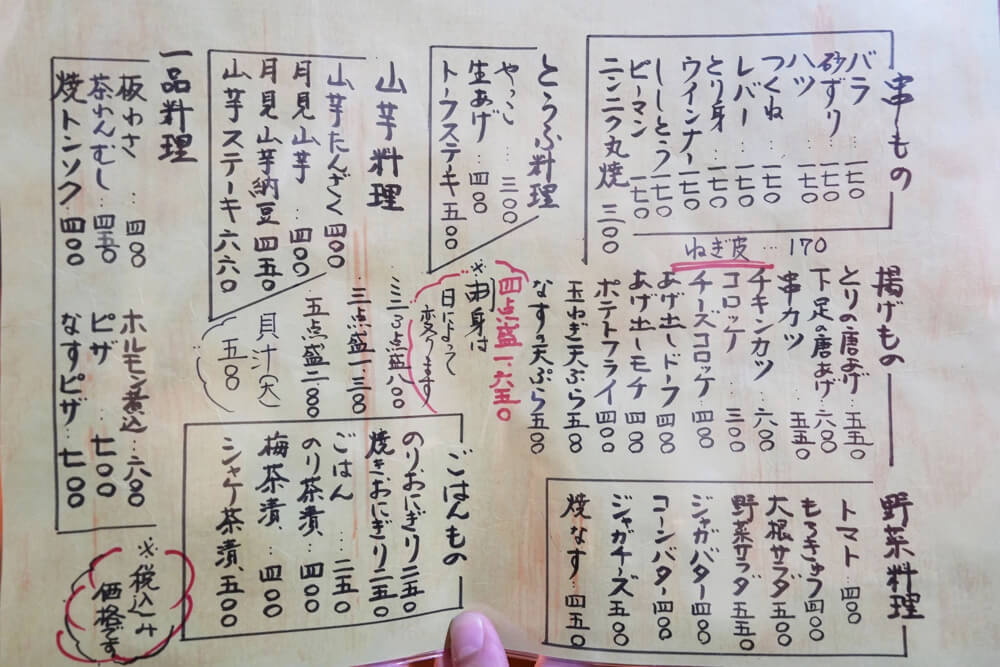 串もの
バラ 一七〇
砂ずり 一七〇
ハツ 一七〇
つくね 一七〇
レバー 一七〇
とり身 一七〇
ウインナー 一七〇
ししとう 一七〇
ピーマン 一七〇
ニンニク丸焼 三〇〇
ねぎ皮…170
とうふ料理
やっこ…三〇〇
生あげ…四〇〇
トーフステーキ 五〇〇
山芋料理
山芋たんざく 四〇〇
月見山芋…四〇〇
月見山芋納豆 四五〇
山芋ステーキ 六六〇
一品料理
板わさ…四〇〇
茶わんむし…四五〇
焼トンソク 四〇〇
ホルモン煮込…六〇〇
ピザ…七〇〇
なすピザ…七〇〇
揚げもの
とりの唐あげ…五五〇
下足の唐あげ…六〇〇
串カツ…五五〇
チキンカツ…六〇〇
コロッケ…三〇〇
チーズコロッケ…四〇〇
あげ出しドーフ 四〇〇
あげ出しモチ 四〇〇
ポテトフライ 四〇〇
玉ねぎ天ぷら 五〇〇
なすの天ぷら 五〇〇
四点盛一、六五〇
※刺身は
日によって
変ります
三点盛八〇〇
三点盛一、三〇〇
五点盛二、八〇〇
貝汁(大)
五五〇
野菜料理
トマト…四〇〇
もろきゅう 四〇〇
大根サラダ 五〇〇
野菜サラダ 五五〇
ジャガバター 四〇〇
コーンバター 四〇〇
ジャガチーズ 五〇〇
焼なす…四五〇
ごはんもの
のりおにぎり 二五〇
焼きおにぎり 二五〇
ごはん…二五〇
のり茶漬…四〇〇
梅茶漬、四〇〇
シャケ茶漬、五〇〇
※税込み
価格です